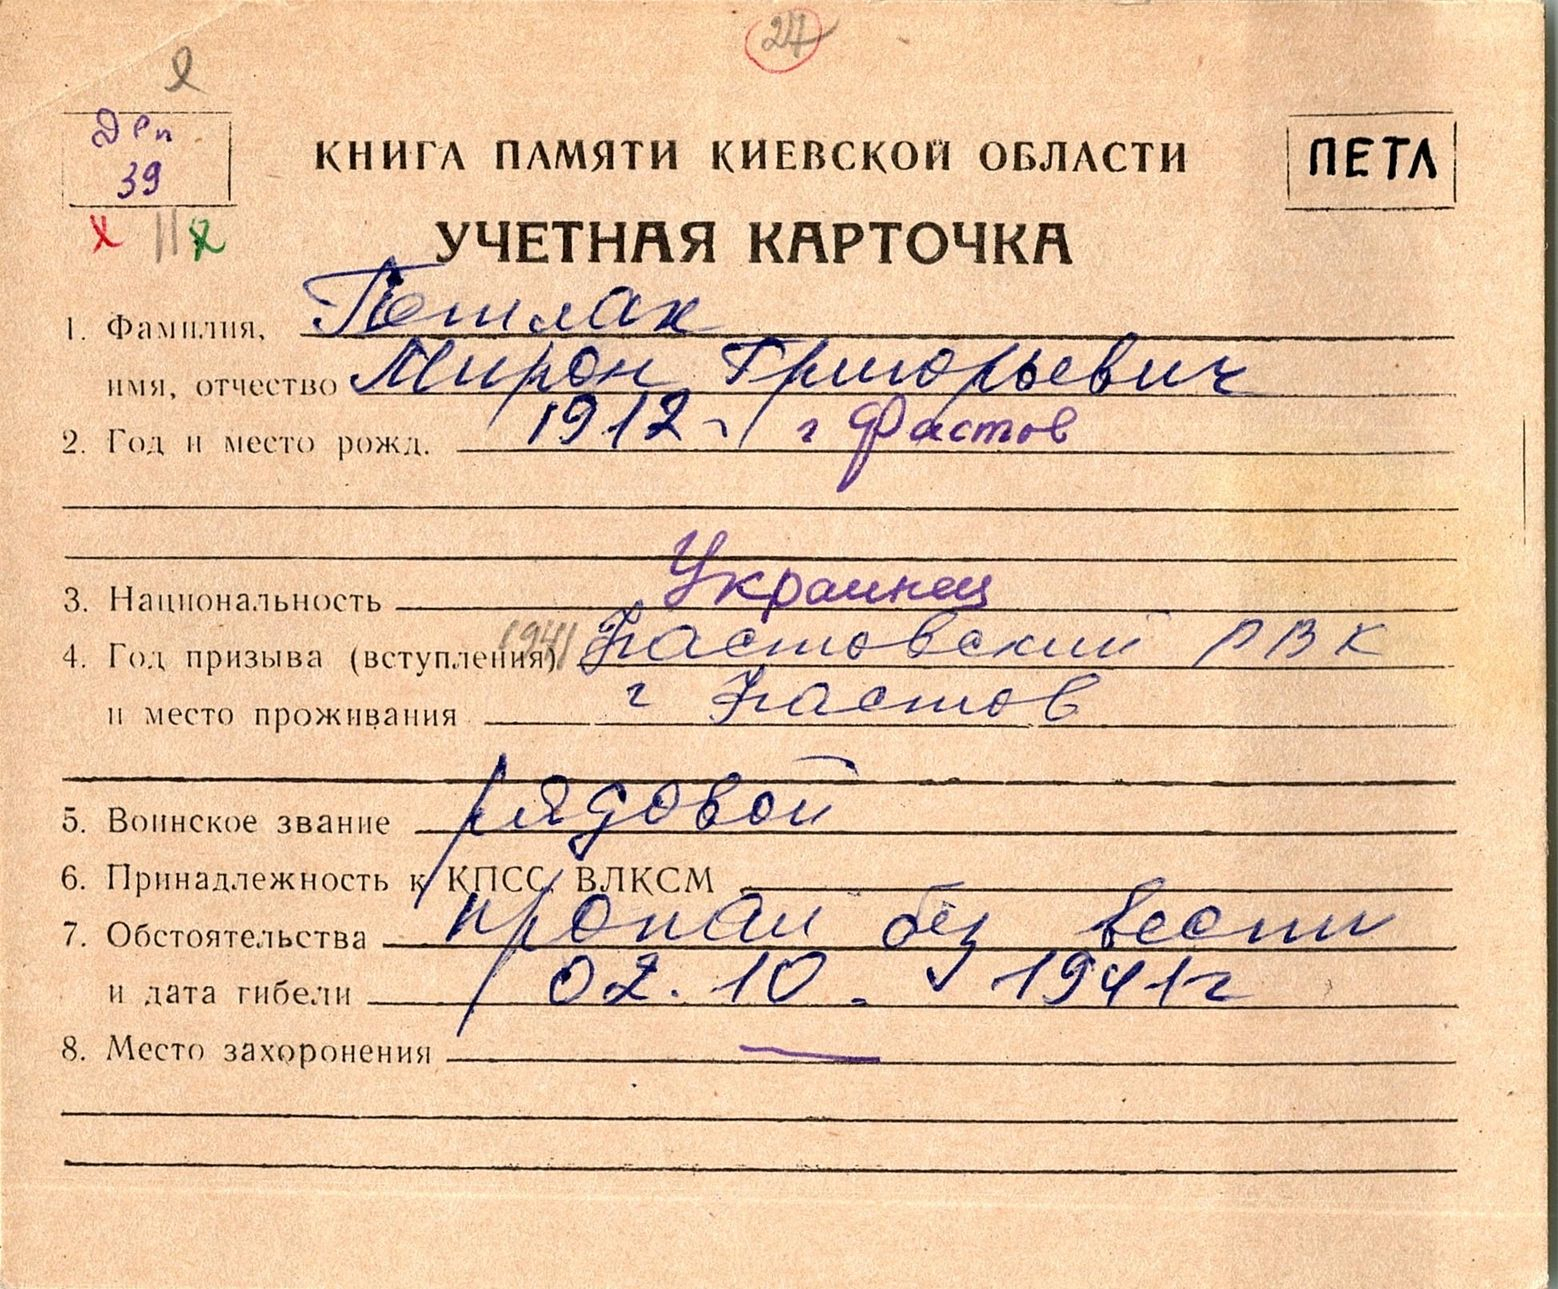 24
Деп
39
КНИГА ПАМЯТИ КИЕВСКОЙ ОБЛАСТИ
ПЕТЛ
УЧЕТНАЯ КАРТОЧКА
1. Фамилия, Петлак
имя, отчество Мирон Григорьевич
2. Год и место рожд. 1912 г Фастов
3. Национальность Украинец
4. Год призыва (вступления) 1941 Фастовский РВК
и место проживания г Фастов
5. Воинское звание рядовой
6. Принадлежность к КПСС, ВЛКСМ
7. Обстоятельства пропал без вести
и дата гибели 02.10.1941г
8. Место захоронения —